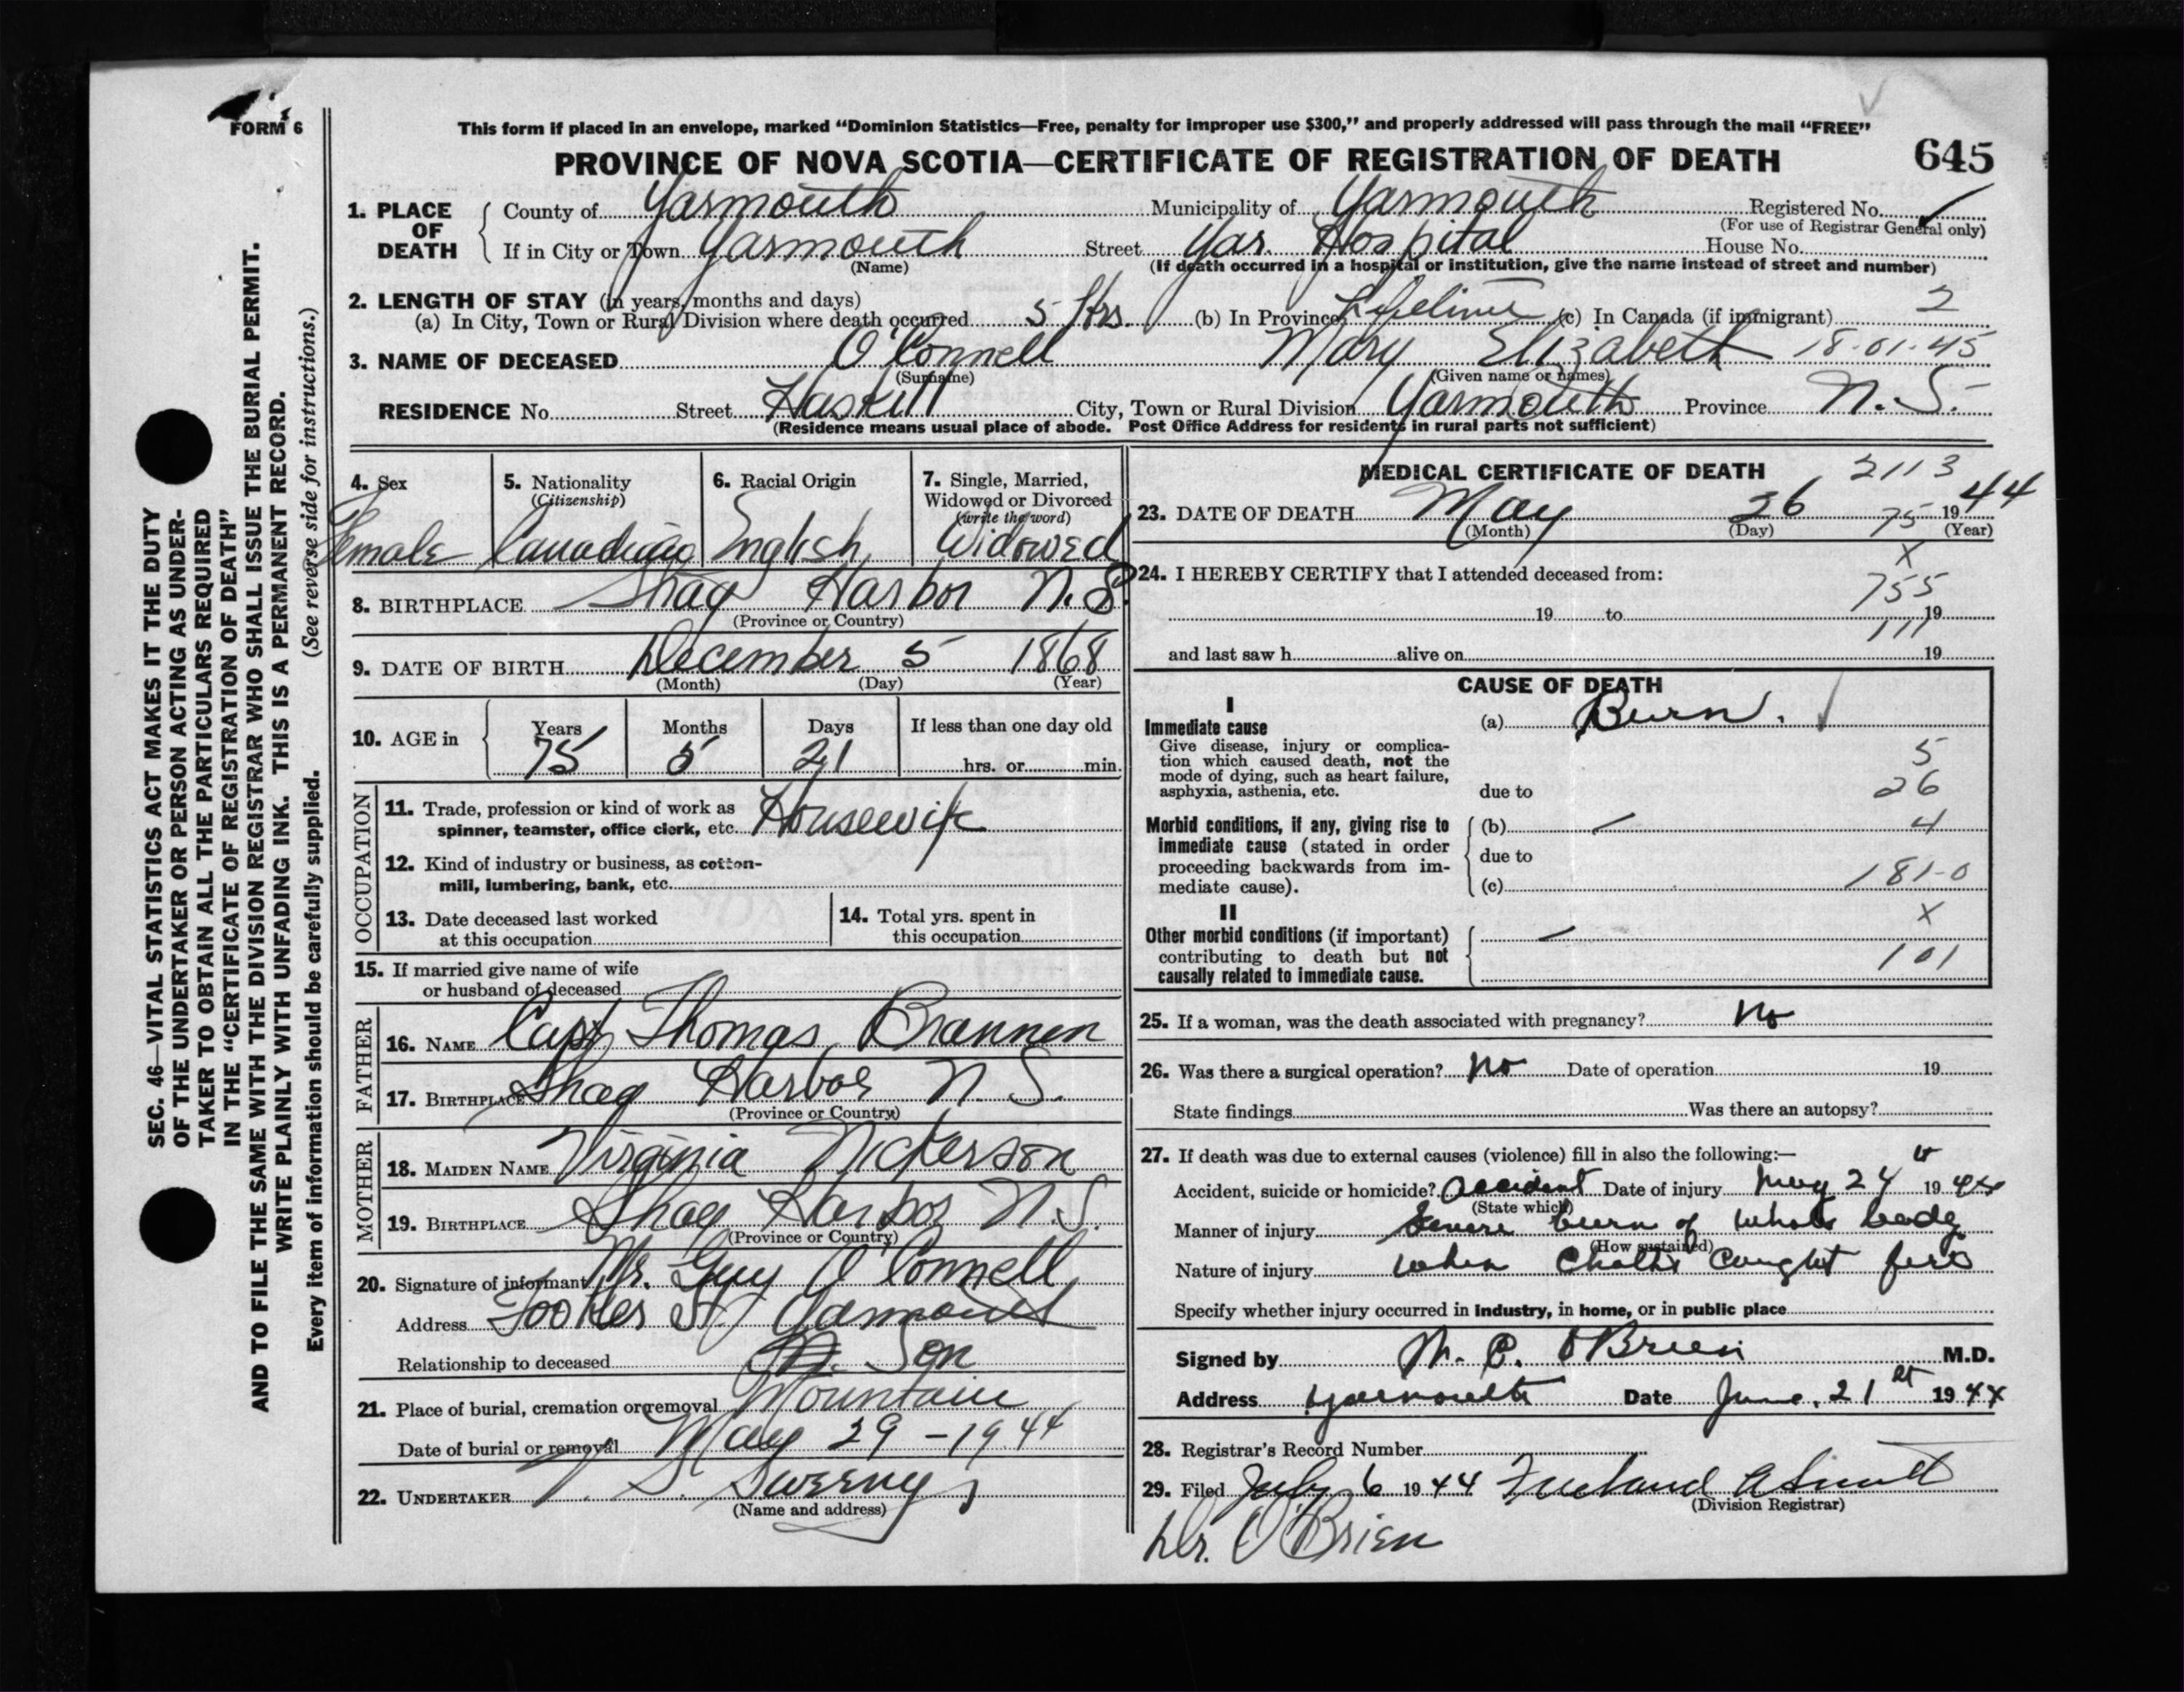 FORM 6
This form if placed in an envelope, marked “Dominion Statistics—Free, penalty for improper use $300,” and properly addressed will pass through the mail “FREE”
PROVINCE OF NOVA SCOTIA—CERTIFICATE OF REGISTRATION OF DEATH 645
1. PLACE OF DEATH County of Yarmouth Municipality of Yarmouth Registered No. ✓
(For use of Registrar General only)
If in City or Town Yarmouth Street Yar. Hospital House No.
(Name) (If death occurred in a hospital or institution, give the name instead of street and number)
2. LENGTH OF STAY (in years, months and days)
(a) In City, Town or Rural Division where death occurred 5 Hrs. (b) In Province Lifetime (c) In Canada (if immigrant) 2
3. NAME OF DECEASED O'Connell Mary Elizabeth 18-01-45
(Surname) (Given name or names)
RESIDENCE No. Street Haskell City, Town or Rural Division Yarmouth Province N.S.
(Residence means usual place of abode. Post Office Address for residents in rural parts not sufficient)
4. Sex 5. Nationality (Citizenship) 6. Racial Origin 7. Single, Married, Widowed or Divorced (write the word)
Female Canadian English Widowed
8. BIRTHPLACE Shag Harbor N.S.
(Province or Country)
9. DATE OF BIRTH December 5 1868
(Month) (Day) (Year)
10. AGE in Years Months Days If less than one day old
75 5 21 hrs. or min.
OCCUPATION
11. Trade, profession or kind of work as
spinner, teamster, office clerk, etc. Housewife
12. Kind of industry or business, as cotton-
mill, lumbering, bank, etc.
13. Date deceased last worked
at this occupation
14. Total yrs. spent in
this occupation
15. If married give name of wife
or husband of deceased
FATHER
16. NAME Capt Thomas Brannen
17. BIRTHPLACE Shag Harbor N.S.
(Province or Country)
MOTHER
18. MAIDEN NAME Virginia Nickerson
19. BIRTHPLACE Shag Harbor N.S.
(Province or Country)
20. Signature of informant Mr. Guy O'Connell
Address St Yarmouth
Relationship to deceased Son
21. Place of burial, cremation or removal Mountain
Date of burial or removal May 29 - 1944
22. UNDERTAKER V. S. Sweeny
(Name and address)
MEDICAL CERTIFICATE OF DEATH 2113
23. DATE OF DEATH May 26 75 1944
(Month) (Day) (Year)
X
24. I HEREBY CERTIFY that I attended deceased from:
755
19 to 19
111
and last saw h alive on 19
CAUSE OF DEATH
I
Immediate cause (a) Burn. ✓
Give disease, injury or complica-
tion which caused death, not the
mode of dying, such as heart failure,
asphyxia, asthenia, etc. due to
5
26
Morbid conditions, if any, giving rise to
immediate cause (stated in order
proceeding backwards from im-
mediate cause).
(b) — 4
due to
(c) 181-0
II X
Other morbid conditions (if important)
contributing to death but not
causally related to immediate cause.
— 101
25. If a woman, was the death associated with pregnancy? No
26. Was there a surgical operation? No Date of operation 19
State findings Was there an autopsy?
27. If death was due to external causes (violence) fill in also the following:—
Accident, suicide or homicide? Accident Date of injury May 24 1944
(State which)
Manner of injury Severe burn of whole body
(How sustained)
Nature of injury when cloths caught fire
Specify whether injury occurred in industry, in home, or in public place
Signed by M. C. O'Brien M.D.
Address Yarmouth Date June. 21st 1944
28. Registrar's Record Number
29. Filed July 6 1944
(Division Registrar)
Dr. O'Brien
SEC. 46—VITAL STATISTICS ACT MAKES IT THE DUTY
OF THE UNDERTAKER OR PERSON ACTING AS UNDER-
TAKER TO OBTAIN ALL THE PARTICULARS REQUIRED
IN THE “CERTIFICATE OF REGISTRATION OF DEATH”
AND TO FILE THE SAME WITH THE DIVISION REGISTRAR WHO SHALL ISSUE THE BURIAL PERMIT.
WRITE PLAINLY WITH UNFADING INK. THIS IS A PERMANENT RECORD.
Every item of information should be carefully supplied. (See reverse side for instructions.)